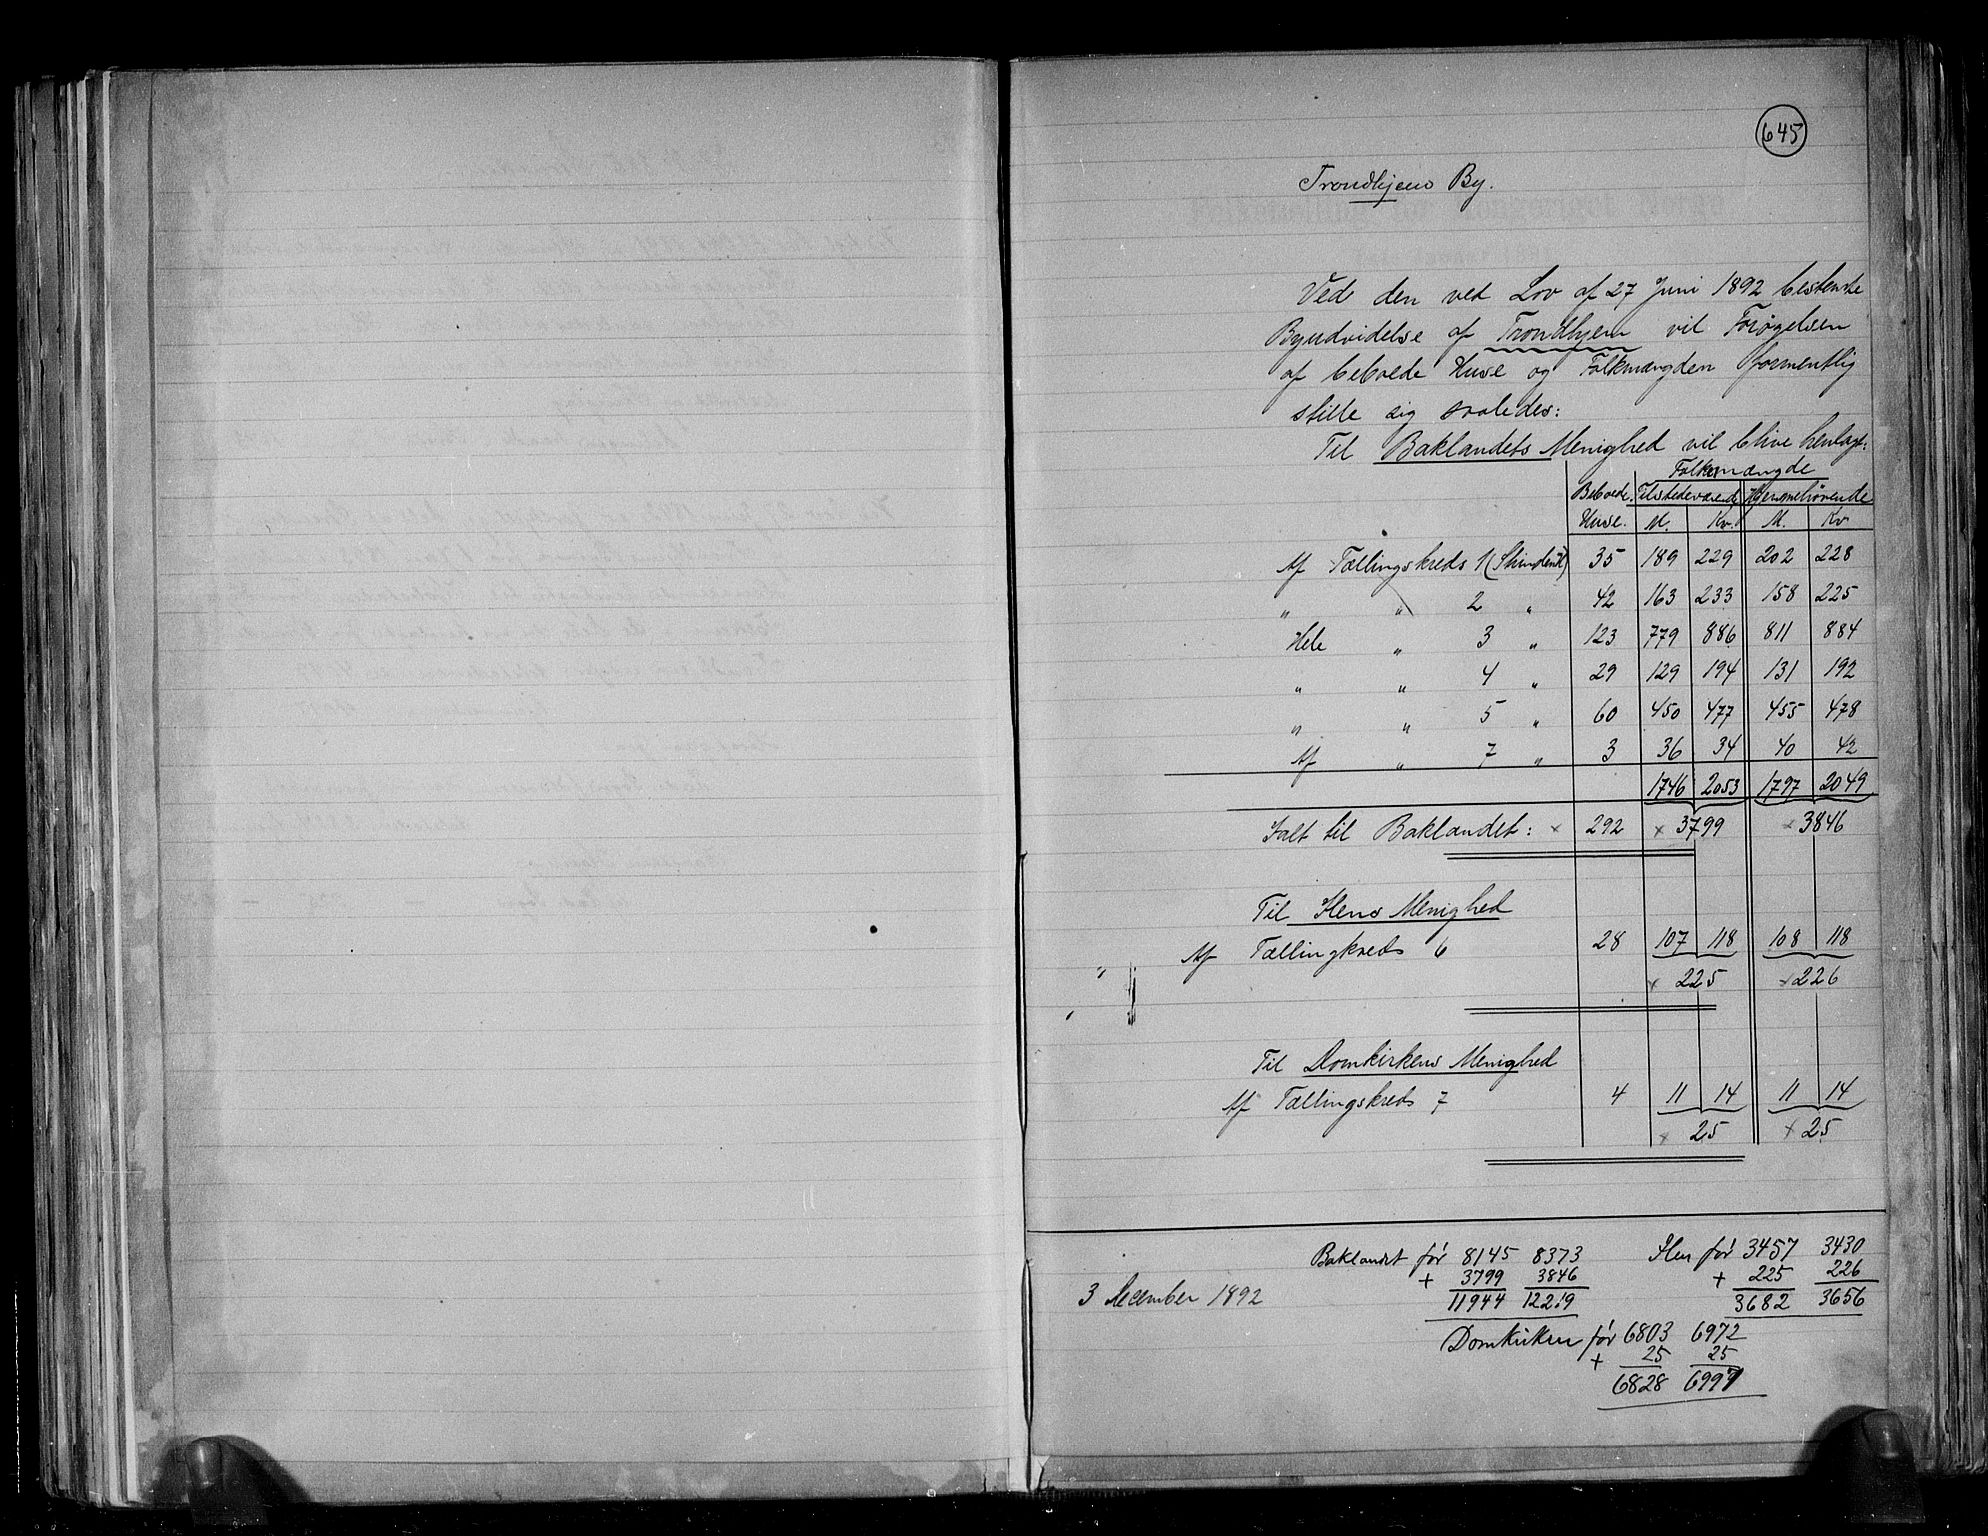 645
Trondhjems By.
Ved den ved Lov af 27 Juni 1892 bestemte
Byudvidelse af Trondhjem vil Forøgelsen
af beboede Huse og Folkemængden formentlig
stille sig saaledes:
Til Baklandets Menighed vil blive henlagt:
Folkemængde
Beboede Tilstedeværende Hjemmehørende
Huse. M. Kv. M. Kv.
Af Tællingskreds 1 (Strinden) 35 189 229 202 228
" " 2 " 42 163 233 158 225
Hele " 3 " 123 779 886 811 884
" " 4 " 29 129 194 131 192
" " 5 " 60 450 477 455 478
Af " 7 " 3 36 34 40 42
1746 2053 1797 2049
Ialt til Baklandet: × 292 × 3799 × 3846
Til Ilens Menighed
Af Tællingkreds 6 28 107 118 108 118
× 225 × 226
Til Domkirkens Menighed
Af Tællingskreds 7 4 11 14 11 14
× 25 × 25
Baklandet før 8145 8373 Ilen før 3457 3430
+ 3799 3846 + 225 226
3 December 1892 11944 12219 3682 3656
Domkirken før 6803 6972
+ 25 25
6828 6997